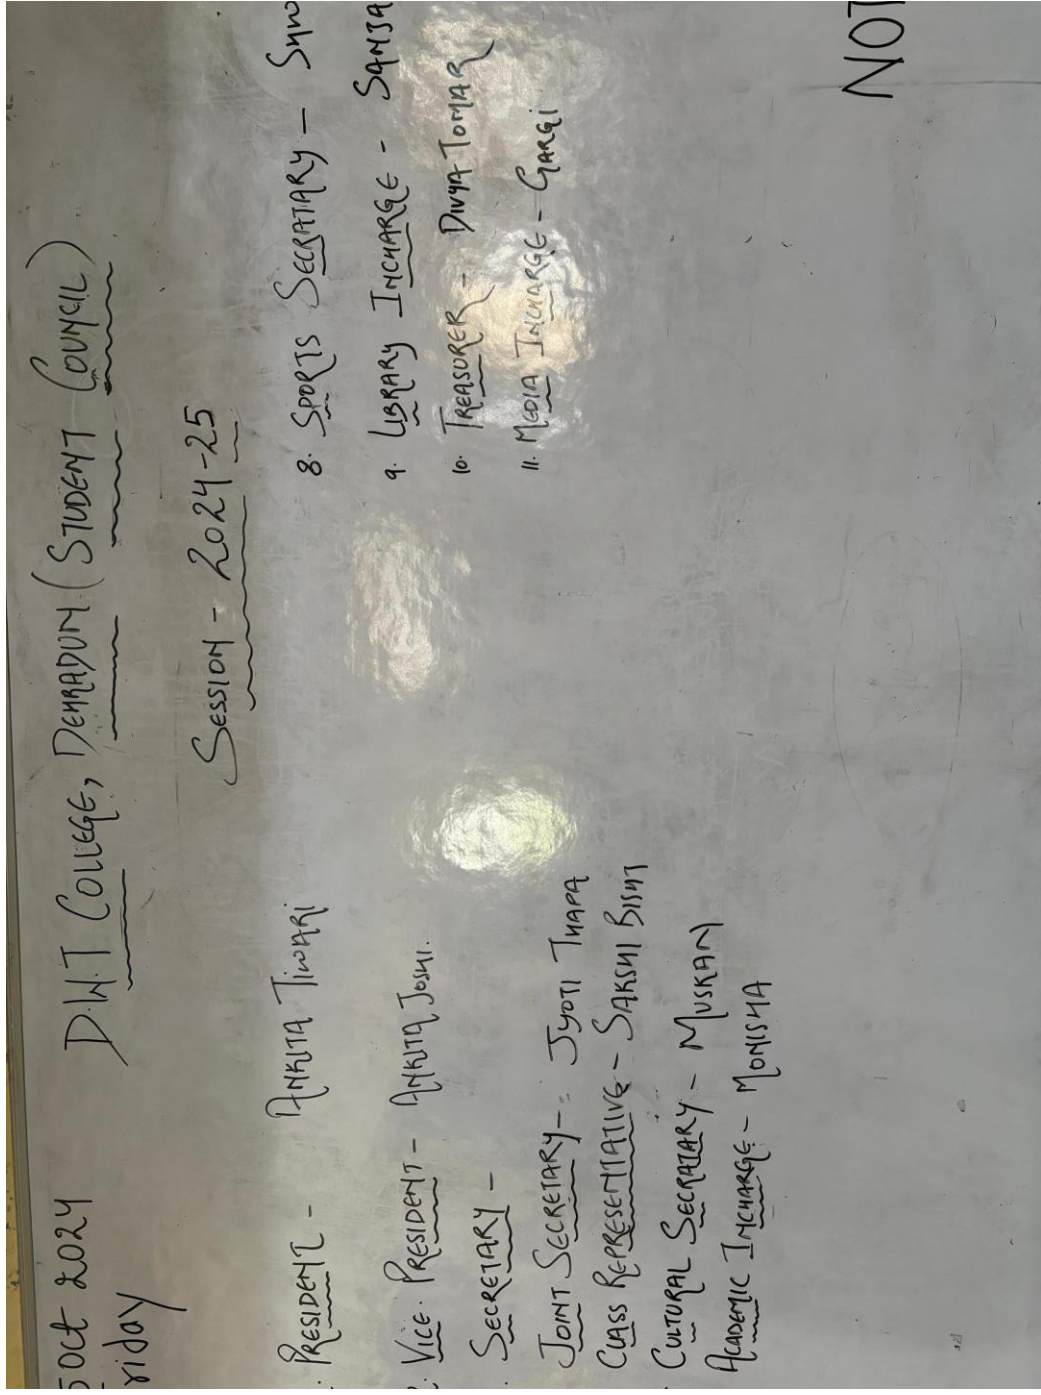 5 Oct 2024
riday
D.W.T COLLEGE, DEHRADUN (STUDENT COUNCIL)
SESSION - 2024-25
PRESIDENT - ANKITA TIWARI
VICE. PRESIDENT - ANKITA JOSHI.
SECRETARY -
JOINT SECRETARY - JYOTI THAPA
CLASS REPRESENTATIVE - SAKSHI BISHT
CULTURAL SECRATARY - MUSKAN
ACADEMIC INCHARGE - MONISHA
8. SPORTS SECRATARY -
9. LIBRARY INCHARGE - SANJA
10. TREASURER - DIVYA TOMAR
11. MEDIA INCHARGE - GARGI
NOT